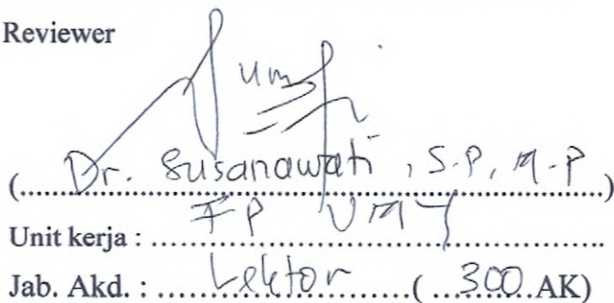 Reviewer
(Dr. Susanawati, S.P, M.P)
FP UMY
Unit kerja : ..........................................................
Jab. Akd. : Lektor ( 300 AK)